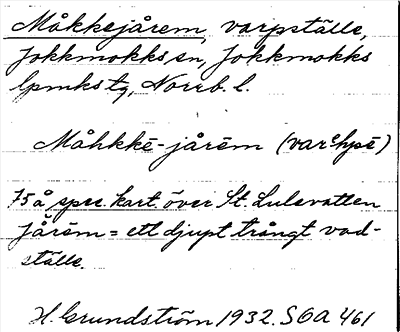 Måkkejårem, varpställe,
Jokkmokks sn, Jokkmokks
lpmks tg, Norrb. l.
Måhkkē-jårēm (varᵃhpē)
75 å spec. kart. över St. Lulevatten
jårēm = ett djupt trångt vad-
ställe.
H. Grundström 1932. SOA 461